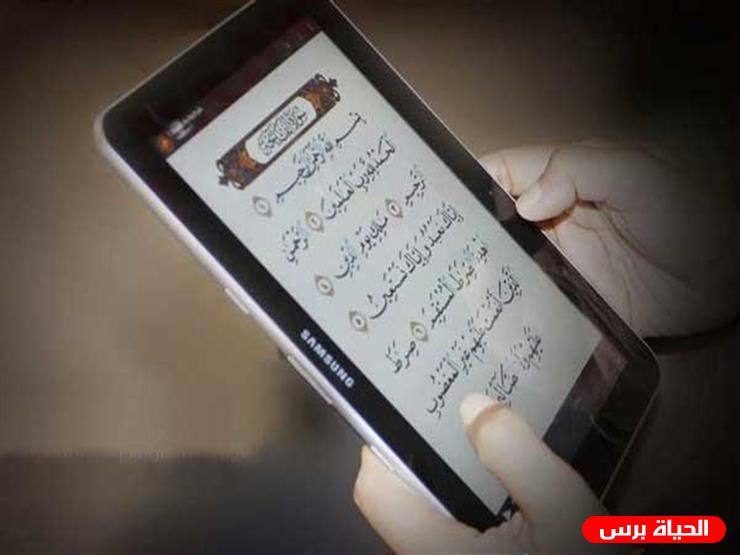 سُورَةُ الفَاتِحَةِ
بِسْمِ ٱللَّهِ ٱلرَّحْمَٰنِ ٱلرَّحِيمِ ١
ٱلْحَمْدُ لِلَّهِ رَبِّ ٱلْعَٰلَمِينَ ٢ ٱلرَّحْمَٰنِ
ٱلرَّحِيمِ ٣ مَٰلِكِ يَوْمِ ٱلدِّينِ ٤
إِيَّاكَ نَعْبُدُ وَإِيَّاكَ نَسْتَعِينُ ٥
ٱهْدِنَا ٱلصِّرَٰطَ ٱلْمُسْتَقِيمَ ٦ صِرَٰطَ
ٱلَّذِينَ أَنْعَمْتَ عَلَيْهِمْ غَيْرِ ٱلْمَغْضُوبِ
عَلَيْهِمْ وَلَا ٱلضَّآلِّينَ
SAMSUNG
الحياة برس